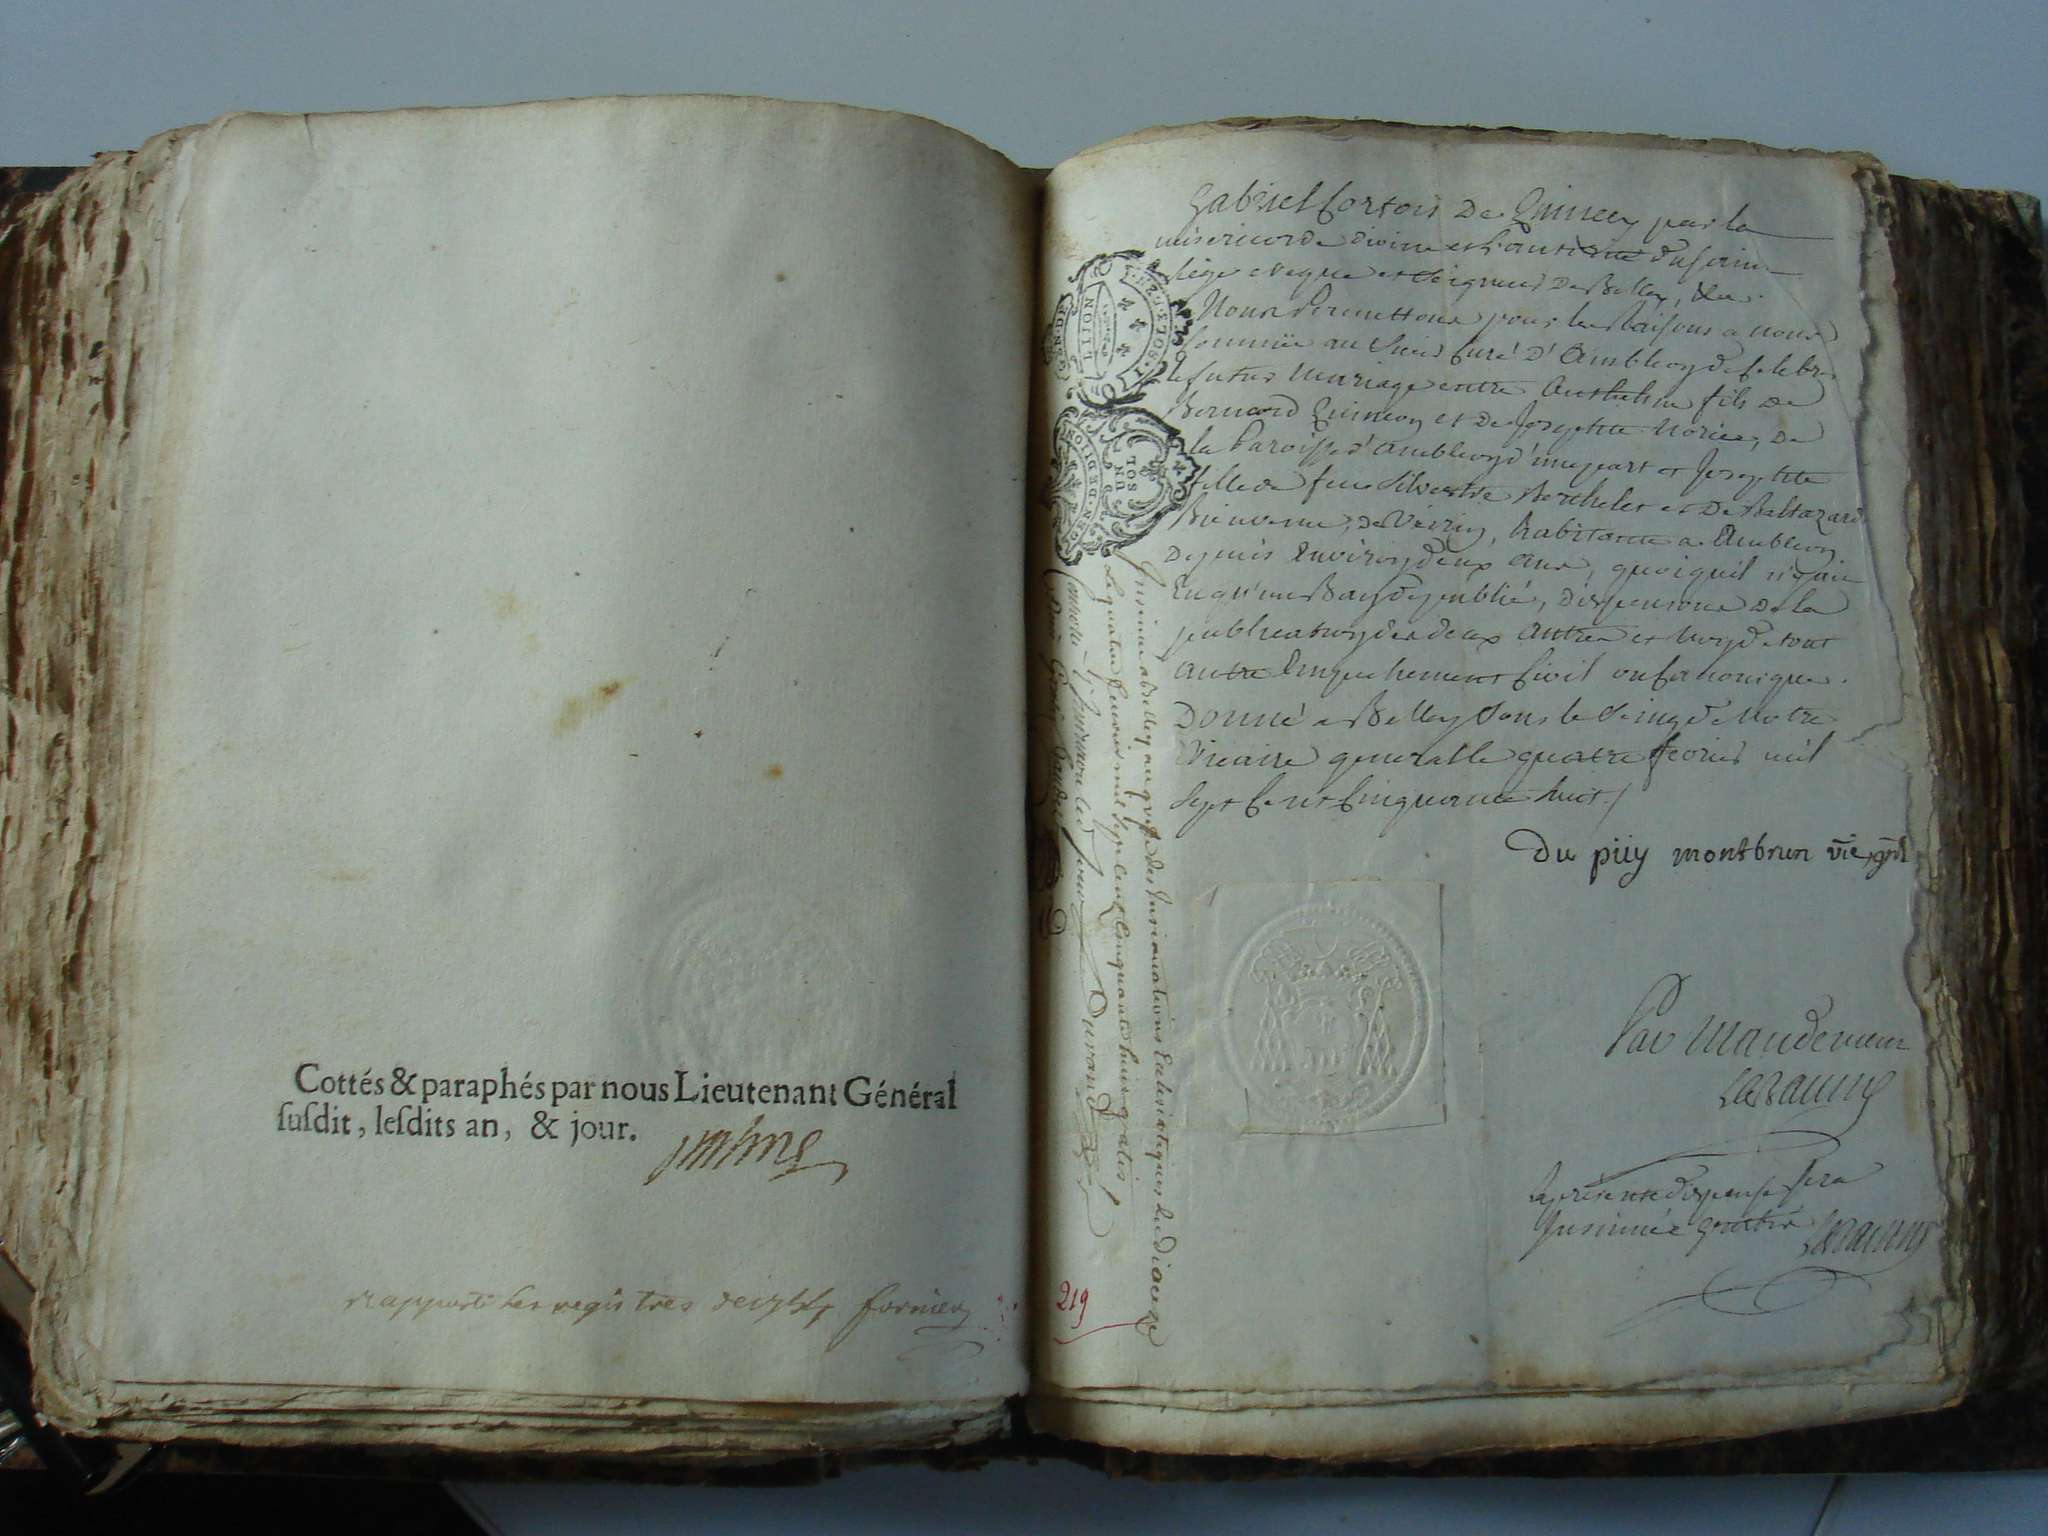 Cottés & paraphés par nous Lieutenant Général
ſuſdit, leſdits an, & jour.
rapporté les registres de
GEN. DE DIION
UN
SOL
Gabriel Cortois De Quincey par la
misericorde divine et l'autorité du saint
siége eveque et Seigneur De Belley, &a.
Nous Permettons pour les Raisons a nous
connües au Sieur Curé D'Ambleon de Celebrer
le futur Mariage entre Anthelme fils De
Bernard Quinson et De Josephte De
la Paroisse d'Ambleon d'une part et Josephte
fille de feu Silvestre Berthelet et De Baltazarde
Bienvenue, de habitante a Ambleon
Depuis Environ deux ans, quoiquil n'y ait
Eu qu'un Ban de publié, Dispensons De la
publication des deux autres et Non de tout
autre Empechement Civil ou Canonique.
Donné a Belley Sous le Seing de Notre
Vicaire general le quatre fevrier mil
Sept Cent Cinquante huit./
Du puy montbrun vic, gñl
Par Mandement
La presente dispense sera
Insinuée gratis
Insinué a Belley au greffe des Insinuations Eclesiastiques du Dioceze
Le quatre fevrier mil sept cent Cinquante huit gratis
Durand
219